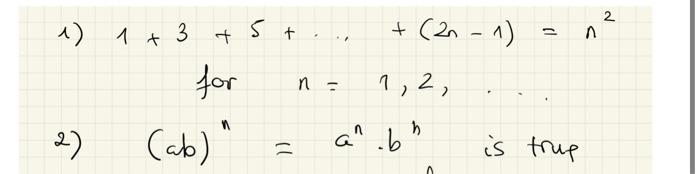 1) 1 + 3 + 5 + . . . , + (2n - 1) = n²
for n = 1, 2, . . .
2) (ab)ⁿ = aⁿ . bⁿ is true